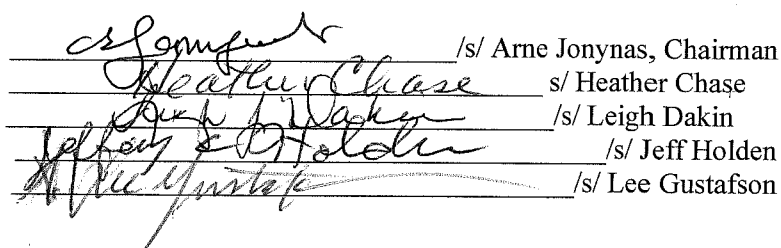 /s/ Arne Jonynas, Chairman
Heather Chase s/ Heather Chase
Leigh Dakin /s/ Leigh Dakin
Jeffrey S Holden /s/ Jeff Holden
Lee Gustaf /s/ Lee Gustafson